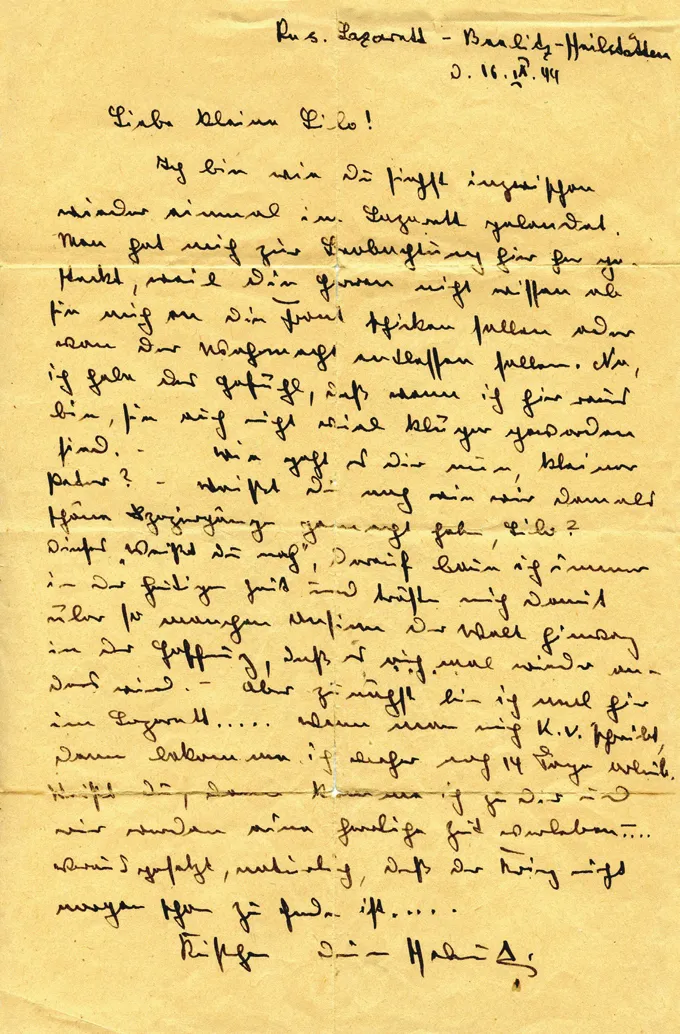 Res. Lazarett - Beelitz-Heilstätten
d. 16. IX. 44
Liebe kleine Lilo!
Ich bin wie Du siehst inzwischen
wieder einmal im Lazarett gelandet.
Man hat mich zur Beobachtung hier her ge-
steckt, weil die Herren nicht wissen ob
sie mich an die Front schicken sollen oder
von der Wehrmacht entlassen sollen. Na,
ich habe das Gefühl, daß wenn ich hier raus
bin, sie auch nicht viel klüger geworden
sind. - Wie geht es Dir nun, kleiner
Peter? - Weißt Du noch wie wir damals
schöne Spaziergänge gemacht haben, Lilo?
Dieses "Weißt Du noch", darauf baue ich immer
in der heutigen Zeit und tröste mich damit
über so manchen Unsinn der Welt hinweg
in der Hoffnung, daß es auch mal wieder an-
ders wird. - Aber zunächst bin ich mal hier
im Lazarett..... Wenn man mich K.V. schreibt,
dann bekomme ich vorher noch 14 Tage Urlaub.
Weißt Du, dann komme ich zu Dir und
wir werden eine herrliche Zeit verleben....
vorausgesetzt, natürlich, daß der Krieg nicht
morgen schon zu Ende ist.....
Küßchen Dein